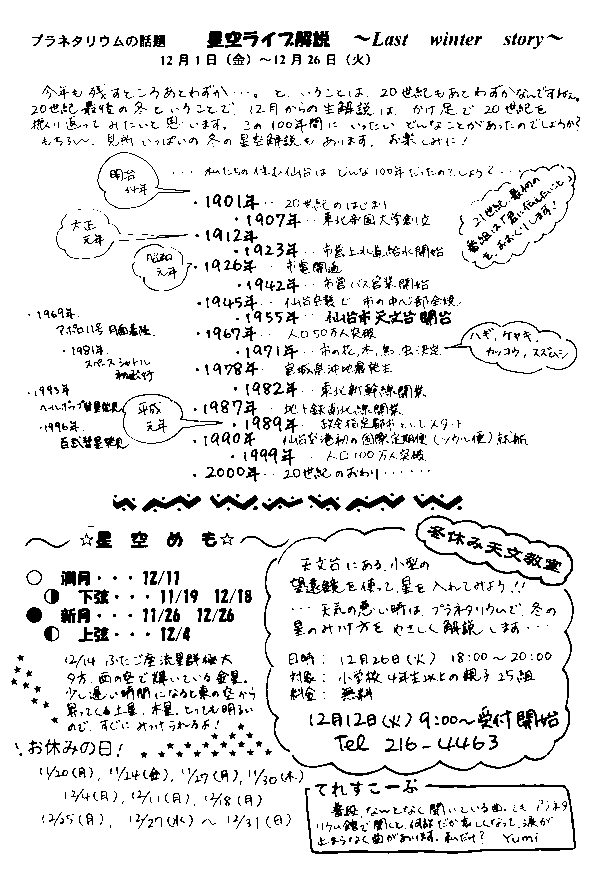 プラネタリウムの話題　星空ライブ解説　〜Last winter story〜
12月1日（金）〜12月26日（火）
今年も残すところあとわずか…。と、いうことは、20世紀もあとわずかなんですねぇ。
20世紀最後の冬ということで、12月からの生解説は、かけ足で20世紀を
振り返ってみたいと思います。この100年間にいったいどんなことがあったのでしょうか?
もちろん、見所いっぱいの冬の星空解説もあります。お楽しみに!
… 私たちの住む仙台はどんな100年だったのでしょう? …
明治
44年
・1901年… 20世紀のはじまり
・1907年… 東北帝国大学創立
大正
元年
・1912年
・1923年… 市営上水道給水開始
昭和
元年
・1926年… 市電開通
・1942年… 市営バス営業開始
・1945年… 仙台空襲で市の中心部全焼
・1955年… 仙台市天文台開台
・1967年… 人口50万人突破
・1971年… 市の花、木、鳥、虫決定
ハギ、ケヤキ、
カッコウ、スズムシ
・1978年… 宮城県沖地震発生
・1982年… 東北新幹線開業
・1987年… 地下鉄南北線開業
平成
元年
・1989年… 政令指定都市としてスタート
・1990年… 仙台空港初の国際定期便（ソウル便）就航
・1999年… 人口100万人突破
・2000年… 20世紀のおわり……
21世紀、最初の
番組は「君に伝えたいこと」
を、おおくりします!
・1969年
アポロ11号 月面着陸
・1981年
スペースシャトル
初飛行
・1995年
ヘールボップ彗星発見
・1996年
百武彗星発見
〜 ☆星空めも☆ 〜
○ 満月・・・12/11
下弦・・・11/19 12/18
● 新月・・・11/26 12/26
上弦・・・12/4
12/14 ふたご座流星群極大
夕方、西の空で輝いている金星。
少し遅い時間になると東の空から
昇ってくる土星、木星。とっても明るい
ので、すぐにみつけられるよ!
お休みの日!
11/20（月）, 11/24（金）, 11/27（月）, 11/30（木）
12/4（月）, 12/11（月）, 12/18（月）
12/25（月）, 12/27（水）〜 12/31（日）
冬休み天文教室
天文台にある、小型の
望遠鏡を使って、星を入れてみよう!!
…天気の悪い時は、プラネタリウムで、冬の
星のみつけ方をやさしく解説します…
日時： 12月26日（火） 18:00〜20:00
対象： 小学校4年生以上の親子25組
料金： 無料
12月12日（火）9:00〜受付開始
Tel 216-4463
てれすこーぷ
普段、なんとなく聞いている曲。でも、プラネタ
リウム館で聞くと、何故だか悲しくなって、涙が
止まらなく曲があります。私だけ? Yumi